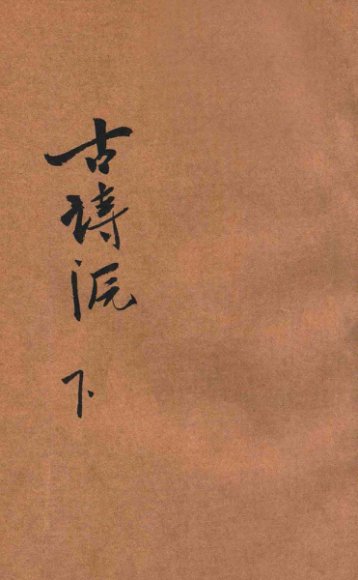 古詩源 下